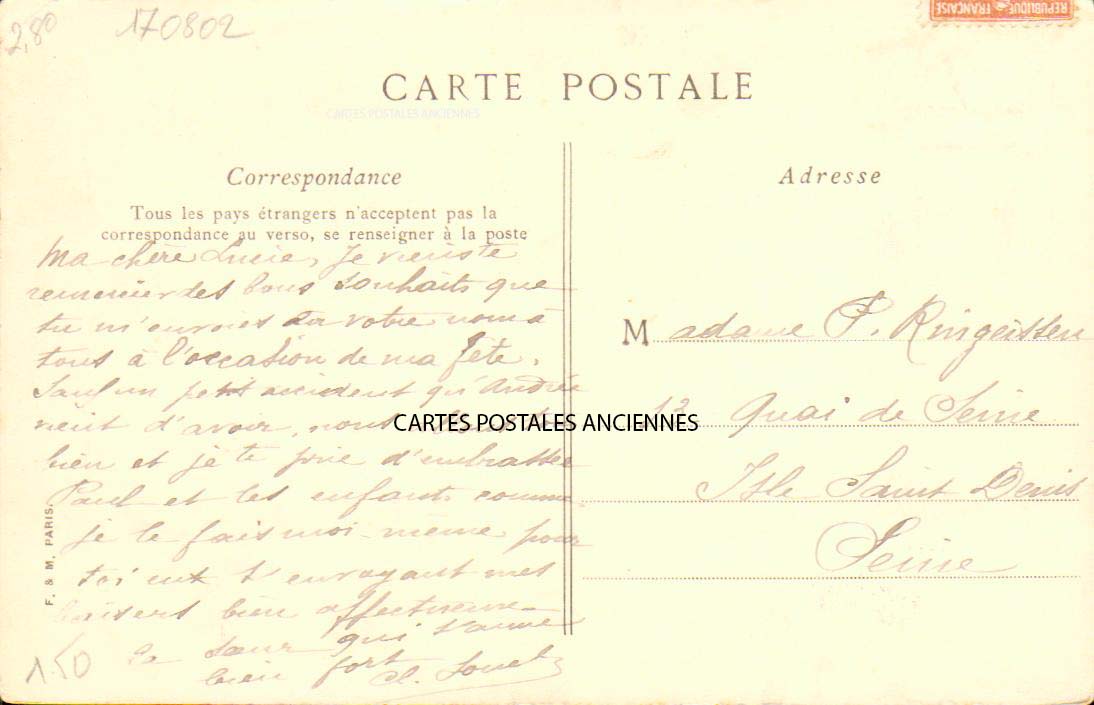 2,80
170802
REPUBLIQUE FRANÇAISE
CARTE POSTALE
CARTES POSTALES ANCIENNES
Correspondance
Tous les pays étrangers n'acceptent pas la
correspondance au verso, se renseigner à la poste
Ma chère Lucie, je viens te
remercier des bons souhaits que
tu m'envoies au votre nom à
tous à l'occasion de ma fête.
Sauf un petit accident qu'Andrée
vient d'avoir, nous
bien et je te prie d'embrasser
Paul et les enfants comme
je le fais moi-même pour
toi en t'envoyant mes
baisers bien affectueux
ta sœur qui t'aime
bien fort
F. & M. PARIS.
1.50
Adresse
Madame P. Ringeissen
CARTES POSTALES ANCIENNES
12 Quai de Seine
Isle Saint Denis
Seine